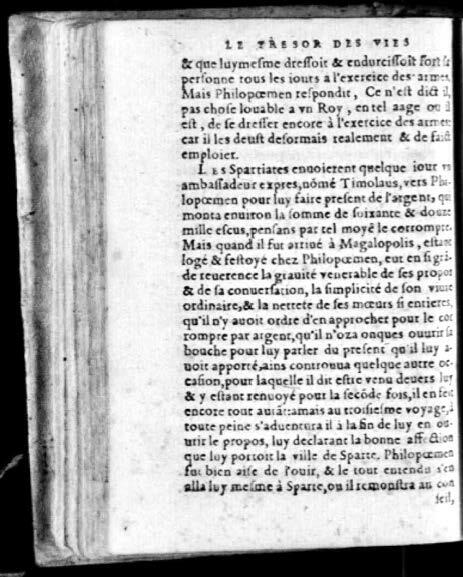 LE TRESOR DES VIES
& que luymesme dressoit & endurcissoit fort sa
personne tous les iours à l'exercice des armes.
Mais Philopœmen respondit, Ce n'est dict il,
pas chose louable a vn Roy, en tel aage ou il
est, de se dresser encore à l'exercice des armes
car il les deust desormais realement & de faict
emploier.
LES Spartiates enuoierent quelque iour vn
ambassadeur expres, nōmé Timolaus, vers Phi-
lopœmen pour luy faire present de l'argent, qui
monta enuiron la somme de soixante & douze
mille escus, pensans par tel moyē le corrompre.
Mais quand il fut arriué à Magalopolis, estant
logé & festoyé chez Philopœmen, eut en si grā-
de reuerence la grauité venerable de ses propos
& de sa conuersation, la simplicité de son viure
ordinaire, & la nettete de ses mœurs si entieres,
qu'il n'y auoit ordre d'en approcher pour le cor
rompre par argent, qu'il n'oza onques ouurir sa
bouche pour luy parler du present qu'il luy a-
uoit apporté, ains controuua quelque autre oc-
casion, pour laquelle il dit estre venu deuers luy
& y estant renuoyé pour la secōde fois, il en feit
encore tout autāt: amais au troisiesme voyage, à
toute peine s'aduentura il à la fin de luy en ou-
urir le propos, luy declarant la bonne affection
que luy portoit la ville de Sparte. Philopœmen
fut bien aise de l'ouir, & le tout entendu s'en
alla luy mesme à Sparte, ou il remonstra au con
seil,